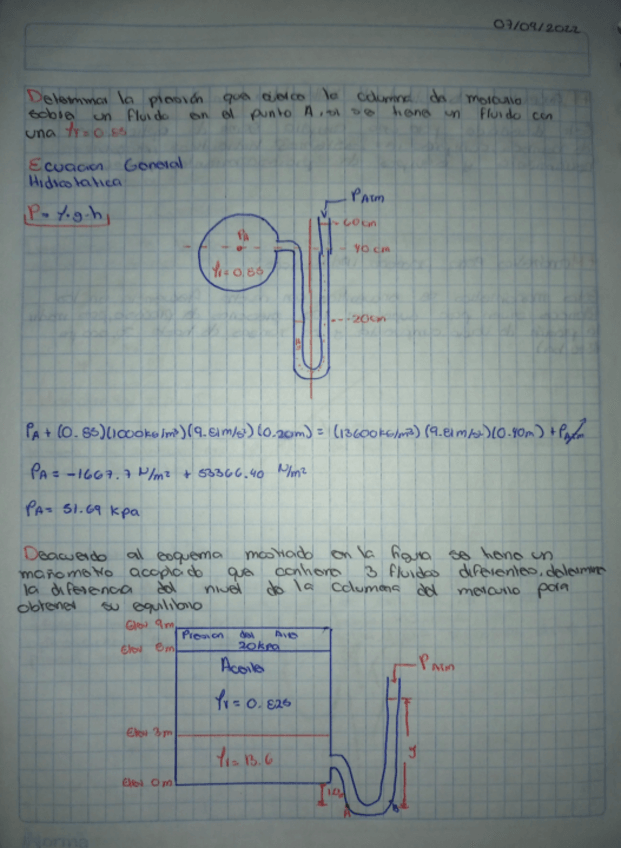 07/09/2022
Determinar la presión que ejerce la columna de mercurio
sobre un fluido en el punto A, si se tiene un fluido con
una γr=0.85
Ecuación General
Hidrostatica
P= γ·g·h
PATM
60cm
PA
40cm
γr=0.85
20cm
PA + (0.85)(1000kg/m³)(9.81m/s²)(0.20m) = (13600kg/m³)(9.81m/s²)(0.40m) + PAtm
PA = -1667.7 N/m² + 53366.40 N/m²
PA= 51.69 kpa
Deacuerdo al esquema mostrado en la figura se tiene un
mañometro acoplado que contiene 3 fluidos diferentes, determine
la diferencia del nivel de la columna del mercurio para
obtener su equilibrio
Elev 9m
Presion del Aire
20kpa
Elev 8m
Aceite
PATM
γr= 0.826
Elev 3m
y
γr= 13.6
Elev 0m
A
B